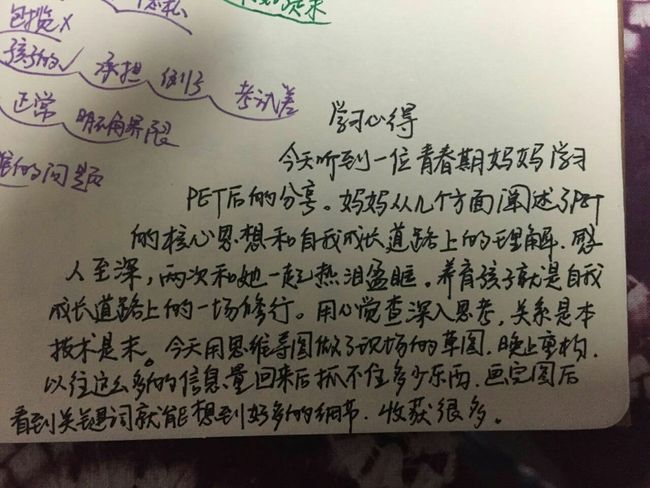 包揽×
孩子的√ 承担 例子 考试差
正常 明确界限
的问题
学习心得
今天听到一位青春期妈妈学习
PET后的分享。妈妈从几个方面阐述了PET
的核心思想和自我成长道路上的理解.感
人至深,两次和她一起热泪盈眶。养育孩子就是自我
成长道路上的一场修行。用心觉查深入思考,关系是本
技术是末。今天用思维导图做了现场的草图.晚上重构.
以往这么多的信息量回来后抓不住多少东西.画完图后
看到关键词就能想到好多的细节.收获很多。